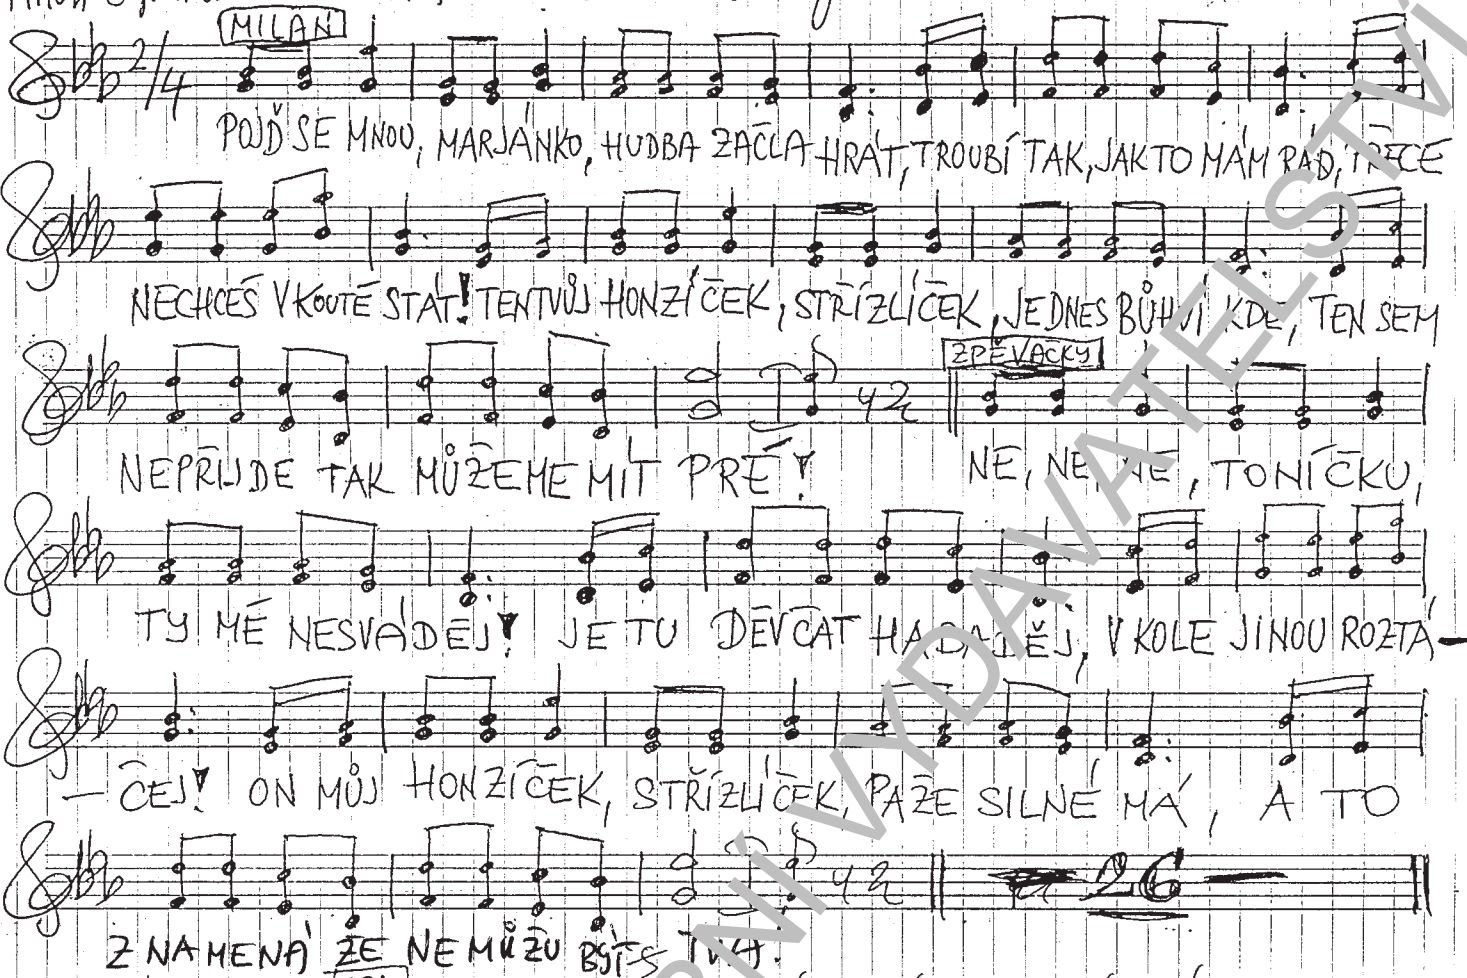 MILAN
2/4
POJĎ SE MNOU, MARJÁNKO, HUDBA ZAČLA HRÁT, TROUBÍ TAK, JAK TO MÁM RÁD, PŘECE
NECHCEŠ V KOUTĚ STÁT! TEN TVŮJ HONZÍČEK, STŘÍZLÍČEK, JE DNES BŮHVÍ KDE, TEN SEM
ZPĚVAČKY
NEPŘIJDE TAK MŮŽEME MÍT PRÉ! NE, NE, NE, TONÍČKU,
TY MĚ NESVÁDĚJ! JE TU DĚVČAT HABADĚJ, V KOLE JINOU ROZTÁ-
-ČEJ! ON MŮJ HONZÍČEK, STŘÍZLÍČEK, PAŽE SILNÉ MÁ, A TO
26
ZNAMENÁ ŽE NEMŮŽU BÝT TVÁ.
RNÍ VYDAVATELSTVÍ